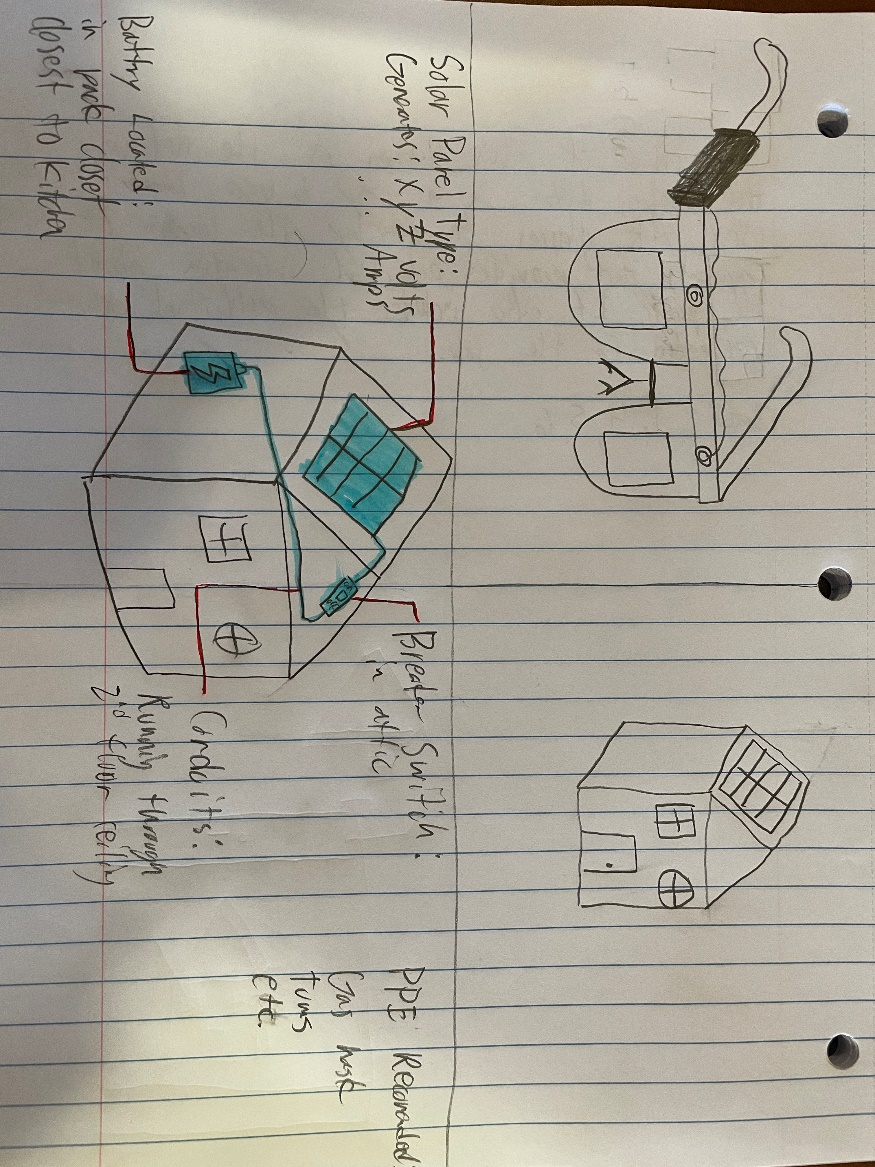 Solar Panel Type:
Generates: X y Z volts
Amps
Battry Located:
in back closet
closest to kitchen
Breaker Switch:
in attic
Conduits:
Running through
2nd floor ceiling
PPE
Gas mask
etc.